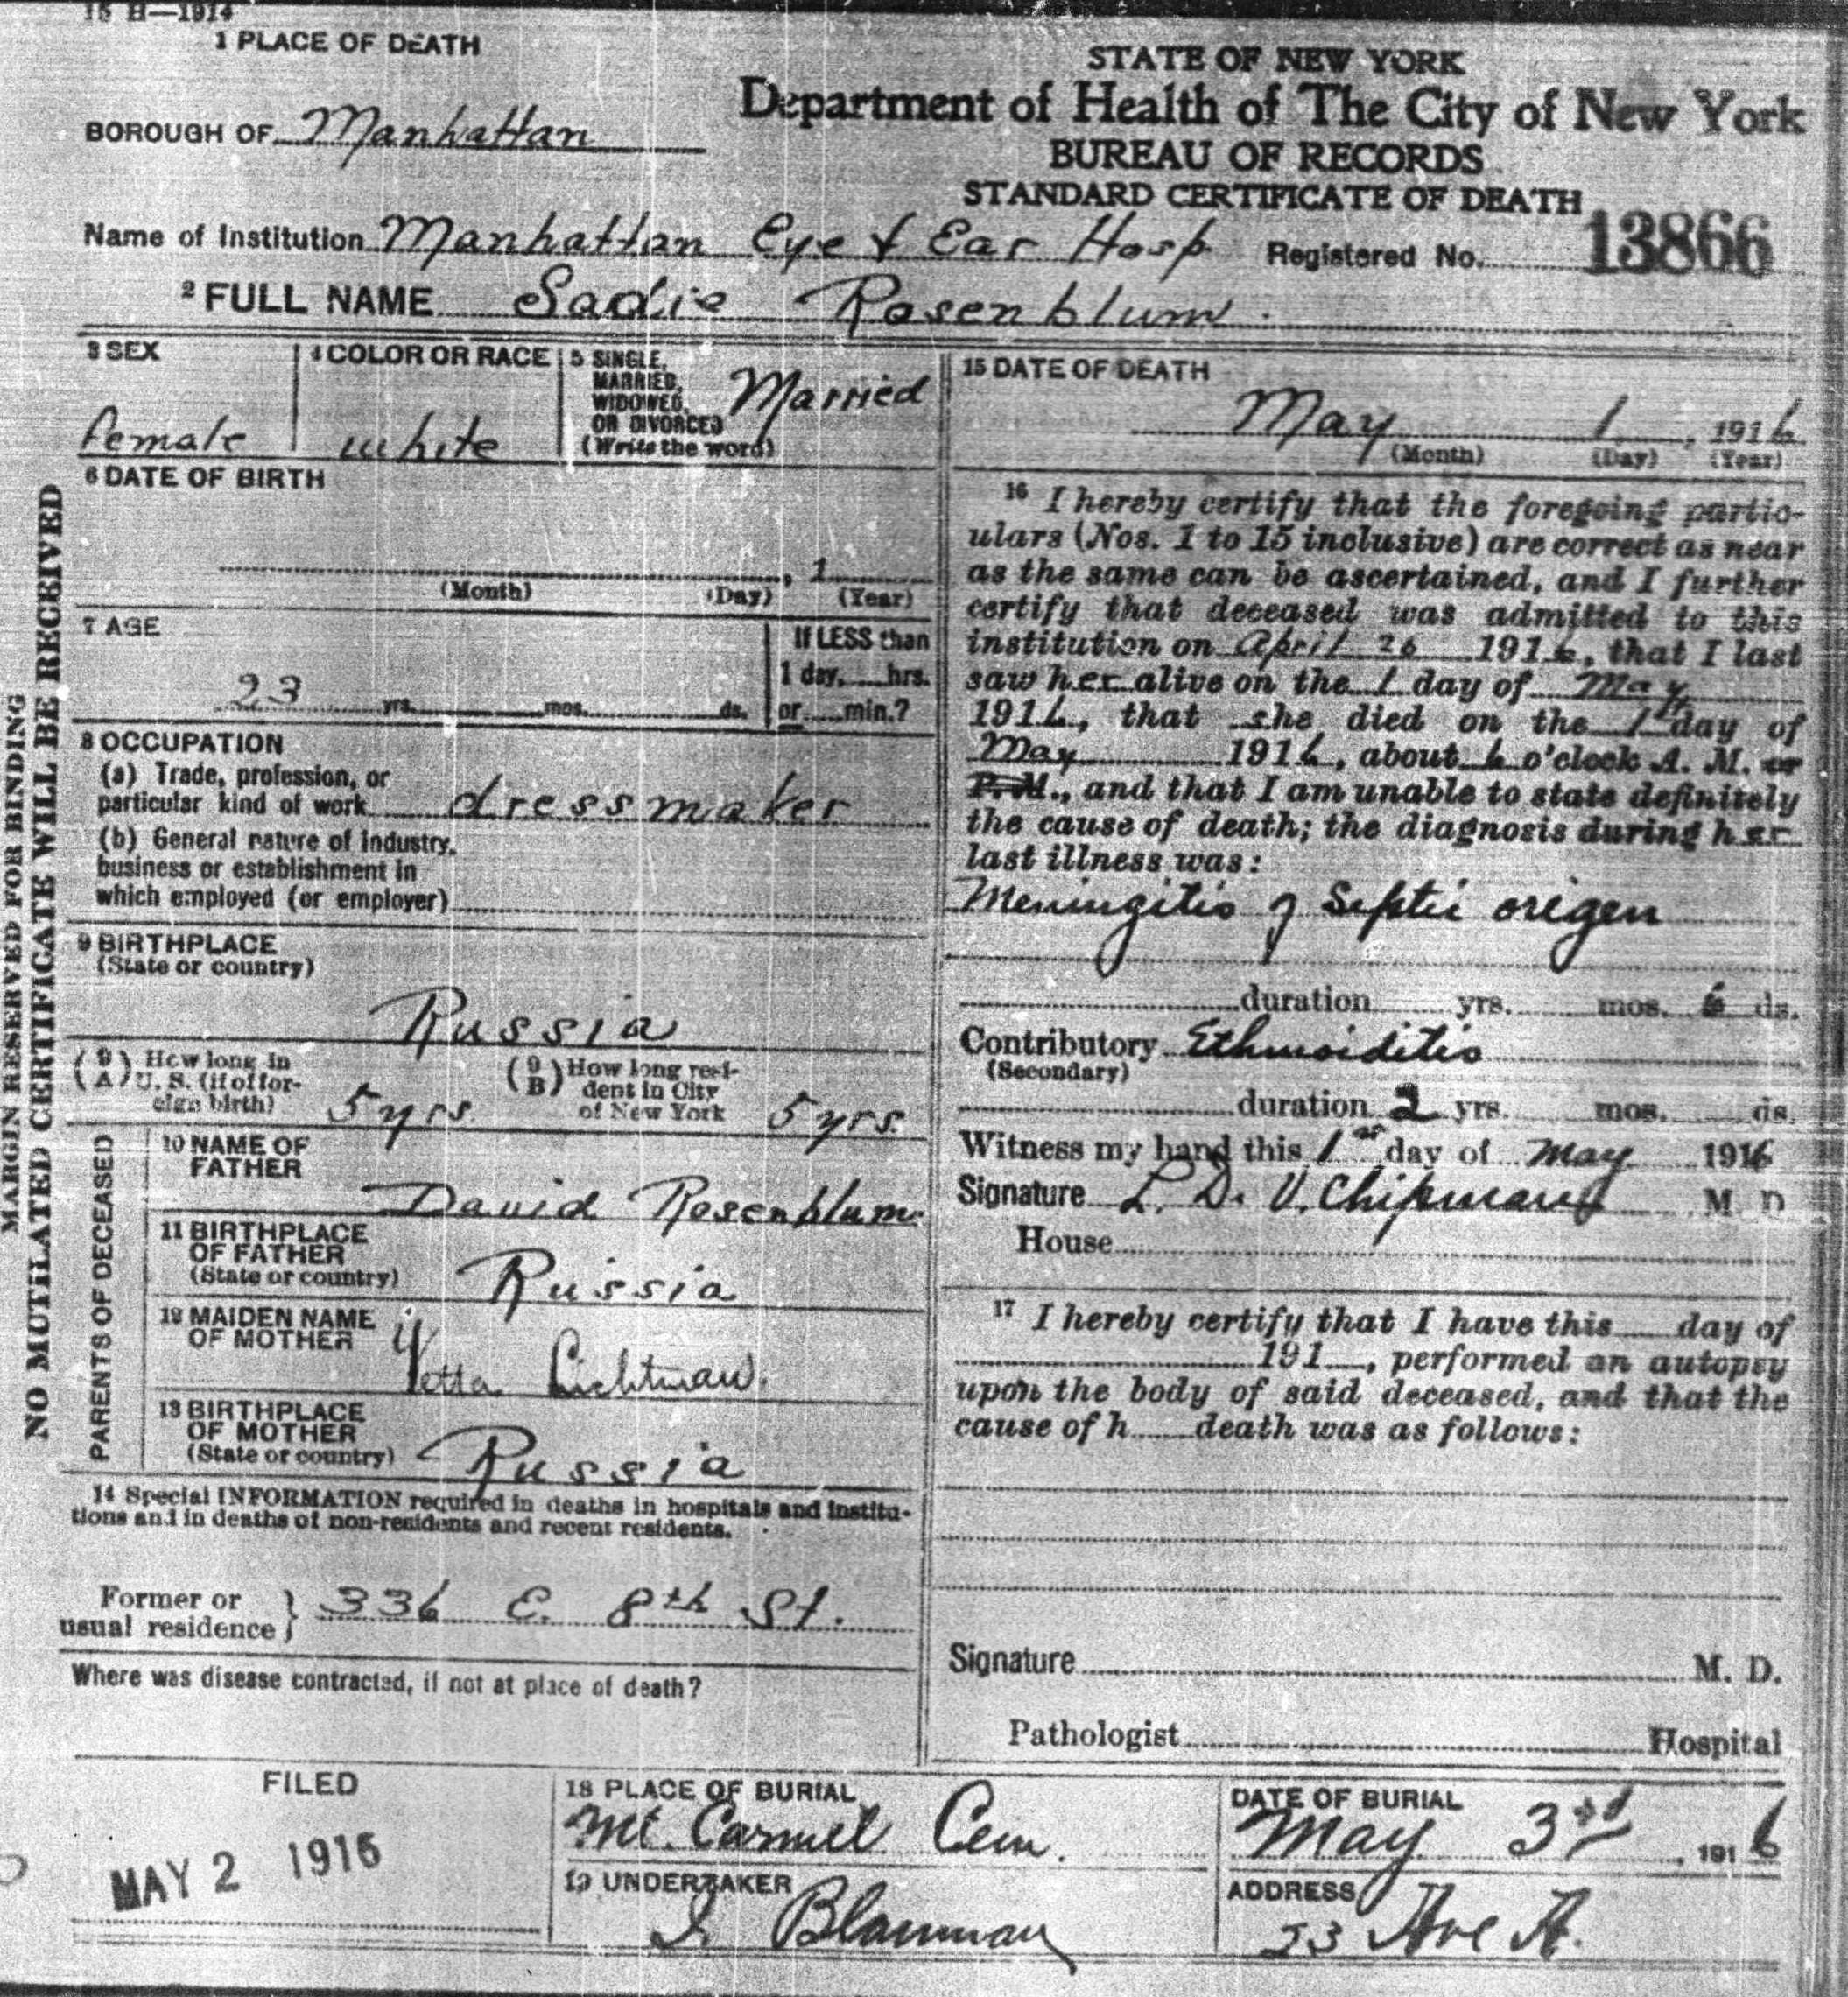 15 H—1914
1 PLACE OF DEATH
STATE OF NEW YORK
Department of Health of The City of New York
BUREAU OF RECORDS
STANDARD CERTIFICATE OF DEATH
BOROUGH OF Manhattan
Name of Institution Manhattan Eye & Ear Hosp Registered No. 13866
2 FULL NAME Sadie Rosenblum
3 SEX
female
4 COLOR OR RACE
white
5 SINGLE,
MARRIED,
WIDOWED,
OR DIVORCED
(Write the word)
Married
6 DATE OF BIRTH
, 1
(Month) (Day) (Year)
7 AGE
23 yrs. mos. ds.
If LESS than
1 day, hrs.
or min.?
8 OCCUPATION
(a) Trade, profession, or
particular kind of work dressmaker
(b) General nature of industry,
business or establishment in
which employed (or employer)
9 BIRTHPLACE
(State or country)
Russia
(9 A) How long in
U. S. (if of for-
eign birth) 5 yrs.
(9 B) How long resi-
dent in City
of New York 5 yrs.
PARENTS OF DECEASED
10 NAME OF
FATHER
David Rosenblum
11 BIRTHPLACE
OF FATHER
(State or country) Russia
12 MAIDEN NAME
OF MOTHER
Yetta Lichtman.
13 BIRTHPLACE
OF MOTHER
(State or country) Russia
14 Special INFORMATION required in deaths in hospitals and institu-
tions and in deaths of non-residents and recent residents.
Former or
usual residence } 336 E. 8th St.
Where was disease contracted, if not at place of death?
15 DATE OF DEATH
May 1, 1916
(Month) (Day) (Year)
16 I hereby certify that the foregoing partic-
ulars (Nos. 1 to 15 inclusive) are correct as near
as the same can be ascertained, and I further
certify that deceased was admitted to this
institution on April 26 1916, that I last
saw her alive on the 1 day of May
1916, that she died on the 1st day of
May 1916, about 6 o'clock A. M. or
P. M., and that I am unable to state definitely
the cause of death; the diagnosis during her
last illness was:
Meningitis of Septic origen
duration yrs. mos. 6 ds.
Contributory Ethmoiditis
(Secondary)
duration 2 yrs. mos. ds.
Witness my hand this 1st day of May 1916
Signature L. D. V. Chipman M. D
House
17 I hereby certify that I have this day of
191 , performed an autopsy
upon the body of said deceased, and that the
cause of h death was as follows:
Signature M. D.
Pathologist Hospital
FILED
MAY 2 1916
18 PLACE OF BURIAL
Mt. Carmel Cem.
DATE OF BURIAL
May 3rd, 1916
19 UNDERTAKER
ADDRESS
23 Ave A.
MARGIN RESERVED FOR BINDING
NO MUTILATED CERTIFICATE WILL BE RECEIVED